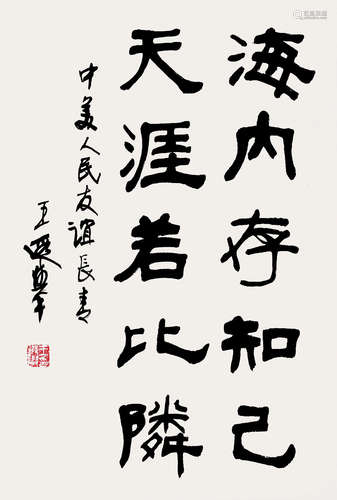 海内存知己
天涯若比隣
中美人民友谊長青
王遐举